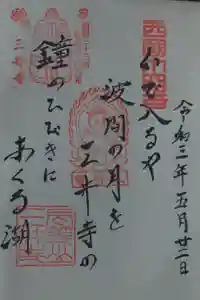 令和三年五月廿二日
いで入るや
波間の月を
三井寺の
鐘のひびきに
あくる湖